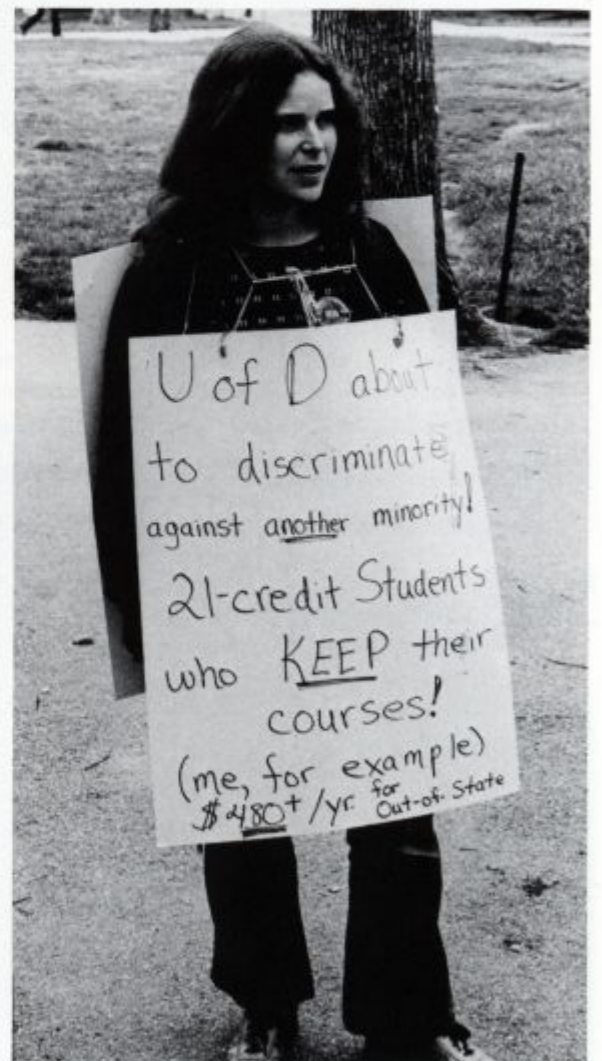 U of D about
to discriminate
against another minority!
21-credit Students
who KEEP their
courses!
(me, for example)
$480+/yr. for Out-of-State